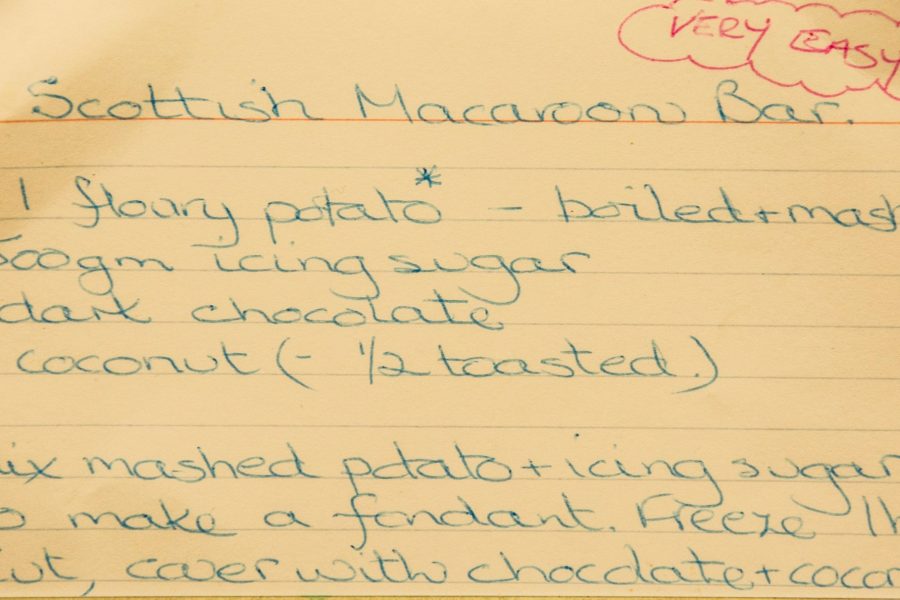 VERY EASY
Scottish Macaroon Bar.
1 floury potato* - boiled + mash
500gm icing sugar
dark chocolate
coconut (- 1/2 toasted.)
ix mashed potato + icing sugar
o make a fondant. Freeze 1h
Cut, cover with chocolate + cocon